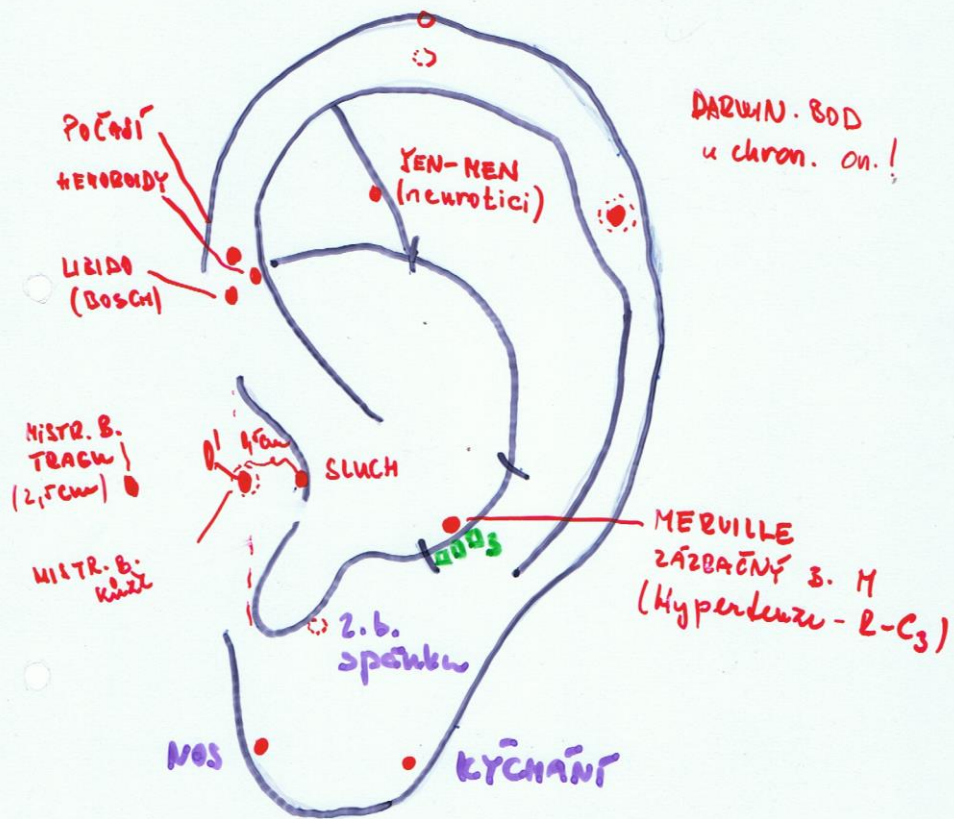 POČASÍ
HEMOROIDY
LIBIDO
(BOSCH)
YEN-MEN
(neurotici)
DARWIN. BOD
u chron. on.!
MISTR. B.
TRAGU
(2,5cm)
SLUCH
MISTR. B.
kůže
MERVILLE
ZÁZRAČNÝ B. M
(Hypertenze - R-C3)
2. b.
spánku
NOS
KÝCHÁNÍ